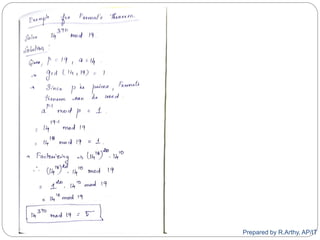 Example for Fermat's theorem.
Solve 14^370 mod 19.
Solution:
Given, P = 19, a = 14.
→ gcd (14, 19) = 1
→ Since p is prime, Fermat's
theorem can be used.
a^p-1 mod p = 1.
= 14^19-1 mod 19
= 14^18 mod 19 = 1.
→ Factorizing → (14^18)^20 . 14^10
∴ (14^18)^20 . 14^10 mod 19
= 1^20 . 14^10 mod 19
= 14^10 mod 19
14^370 mod 19 = 5
Prepared by R.Arthy, AP/IT